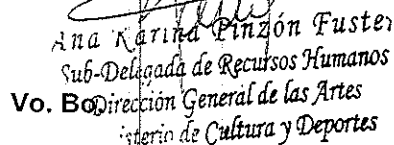 Ana Karina Pinzón Fuster
Sub-Delegada de Recursos Humanos
Vo. Bo. Dirección General de las Artes
isterio de Cultura y Deportes